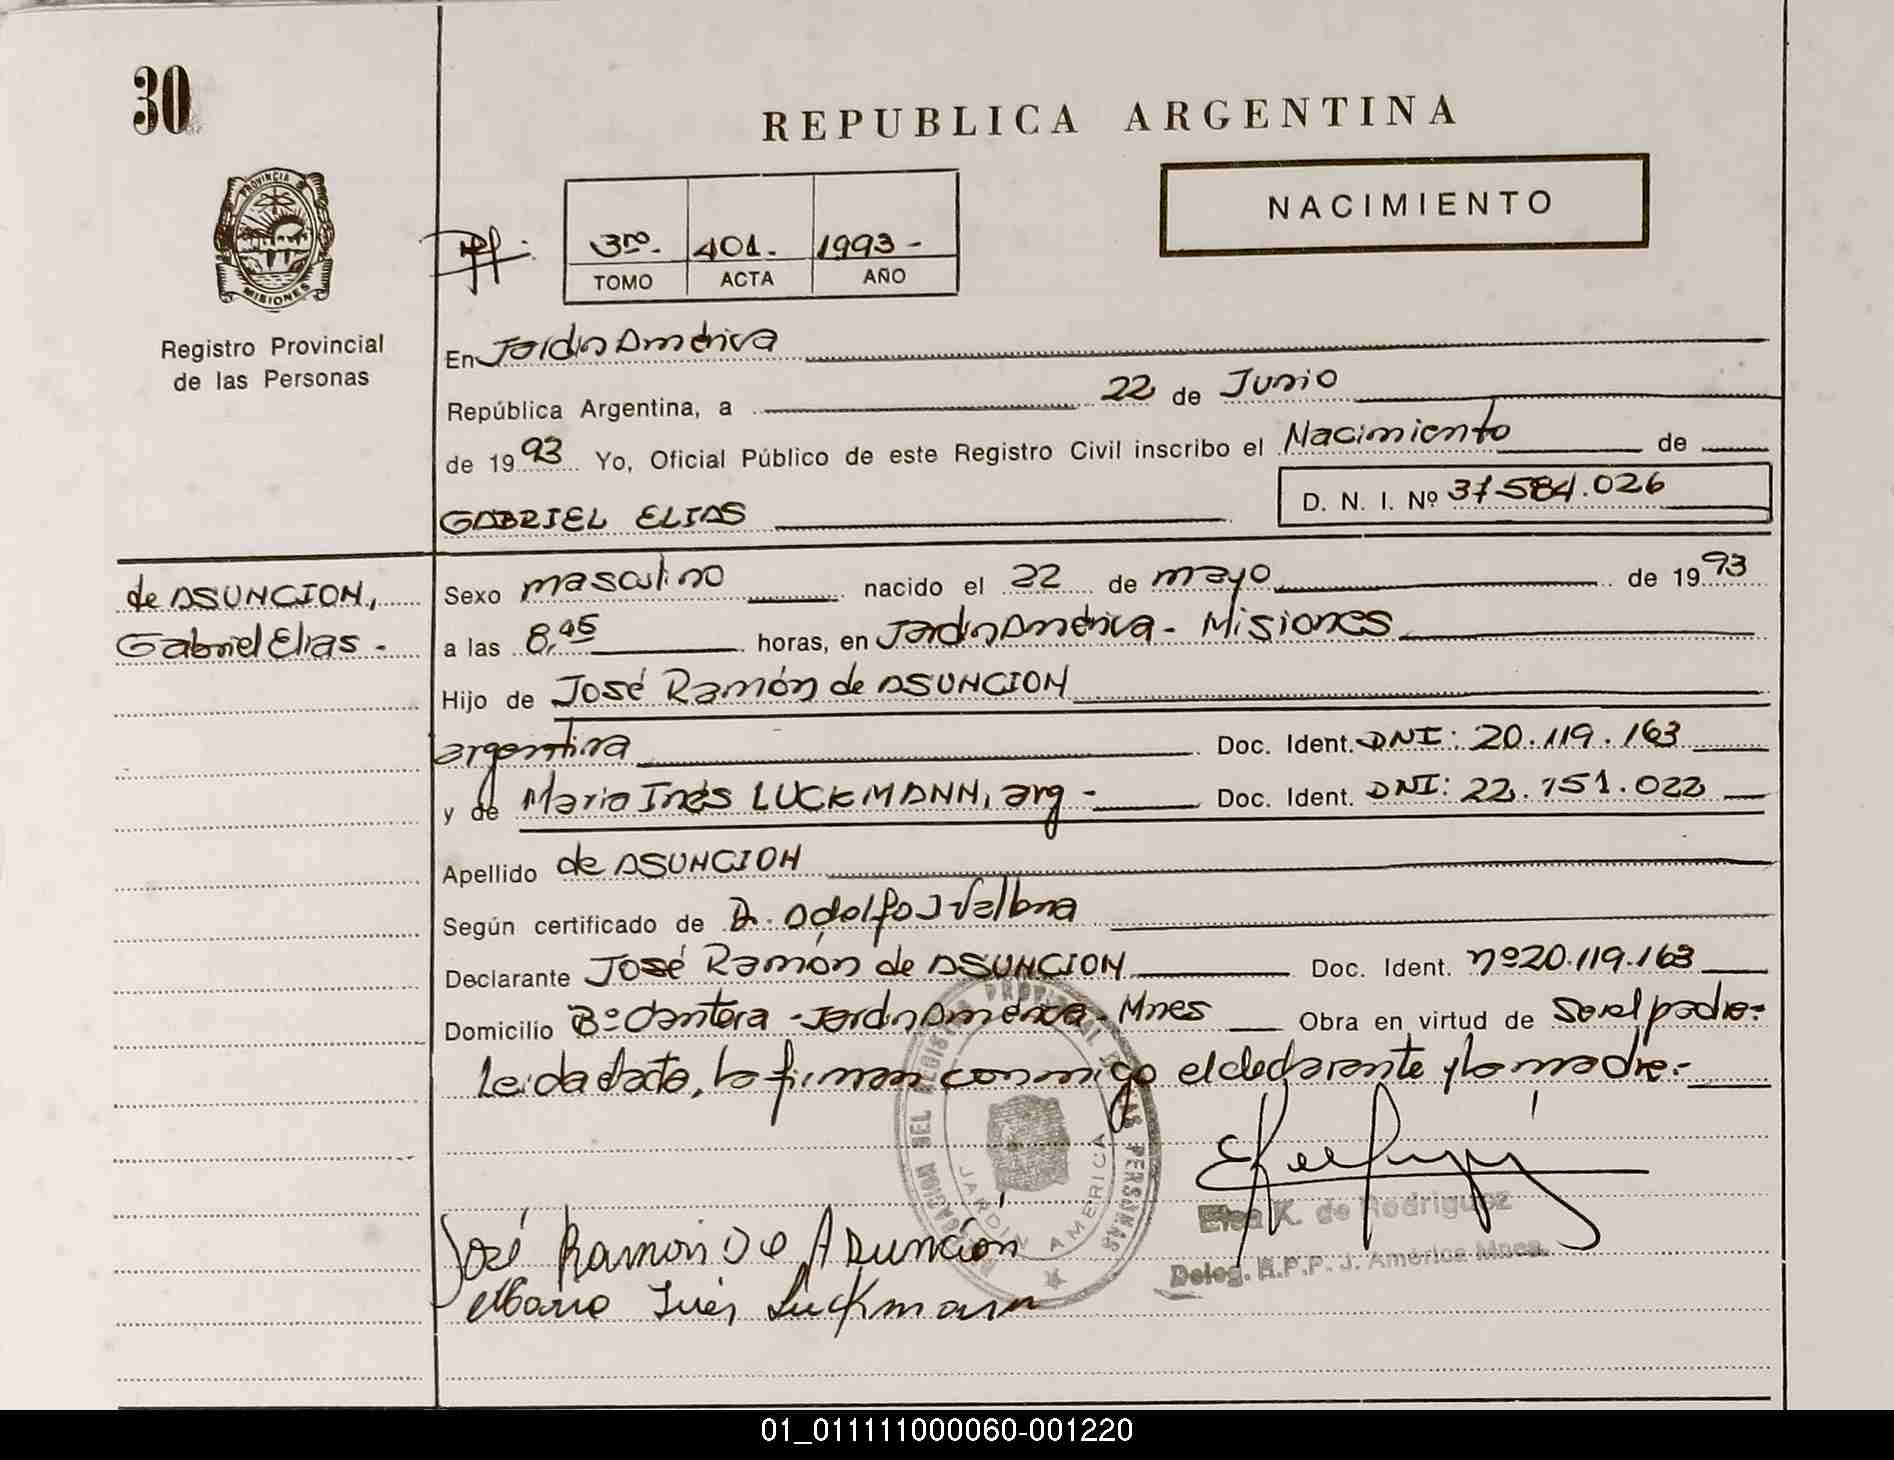 30
REPUBLICA ARGENTINA
NACIMIENTO
PROVINCIA DE
MISIONES
Registro Provincial
de las Personas
3ro. 401. 1993 -
TOMO ACTA AÑO
En Jardin América
República Argentina, a 22 de Junio
de 1993 Yo, Oficial Público de este Registro Civil inscribo el Nacimiento de
GABRIEL ELIAS D. N. I. Nº 37.584.026
de ASUNCION,
Gabriel Elias -
Sexo masculino nacido el 22 de mayo de 1993
a las 8,45 horas, en Jardin América - Misiones
Hijo de José Ramón de ASUNCION
argentina Doc. Ident. DNI: 20.119.163
y de Maria Inés LUCKMANN, arg - Doc. Ident. DNI: 22.751.022
Apellido de ASUNCION
Según certificado de Dr. Adolfo J
Declarante José Ramón de ASUNCION Doc. Ident. nº20.119.163
Domicilio Bº Cantera - Jardin América - Mnes Obra en virtud de Ser el padre-
Leida el acta, la firman conmigo el declarante y la madre.-
DEL REGISTRO PROVINCIAL DE LAS PERSONAS
JARDIN AMERICA
Elsa K. de Rodriguez
Deleg. R.P.P. J. América Mnes.
José Ramón De Asunción
Maria Inés Luckmann
01_011111000060-001220